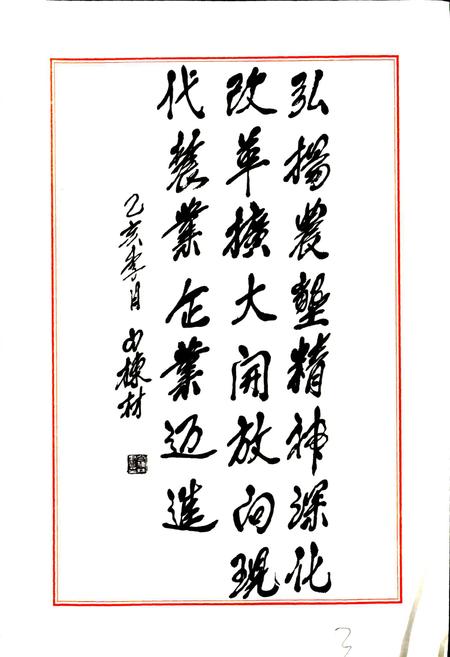 弘揚農墾精神深化
改革擴大開放向現
代農業企業迈進
乙亥季月 山棟材
3